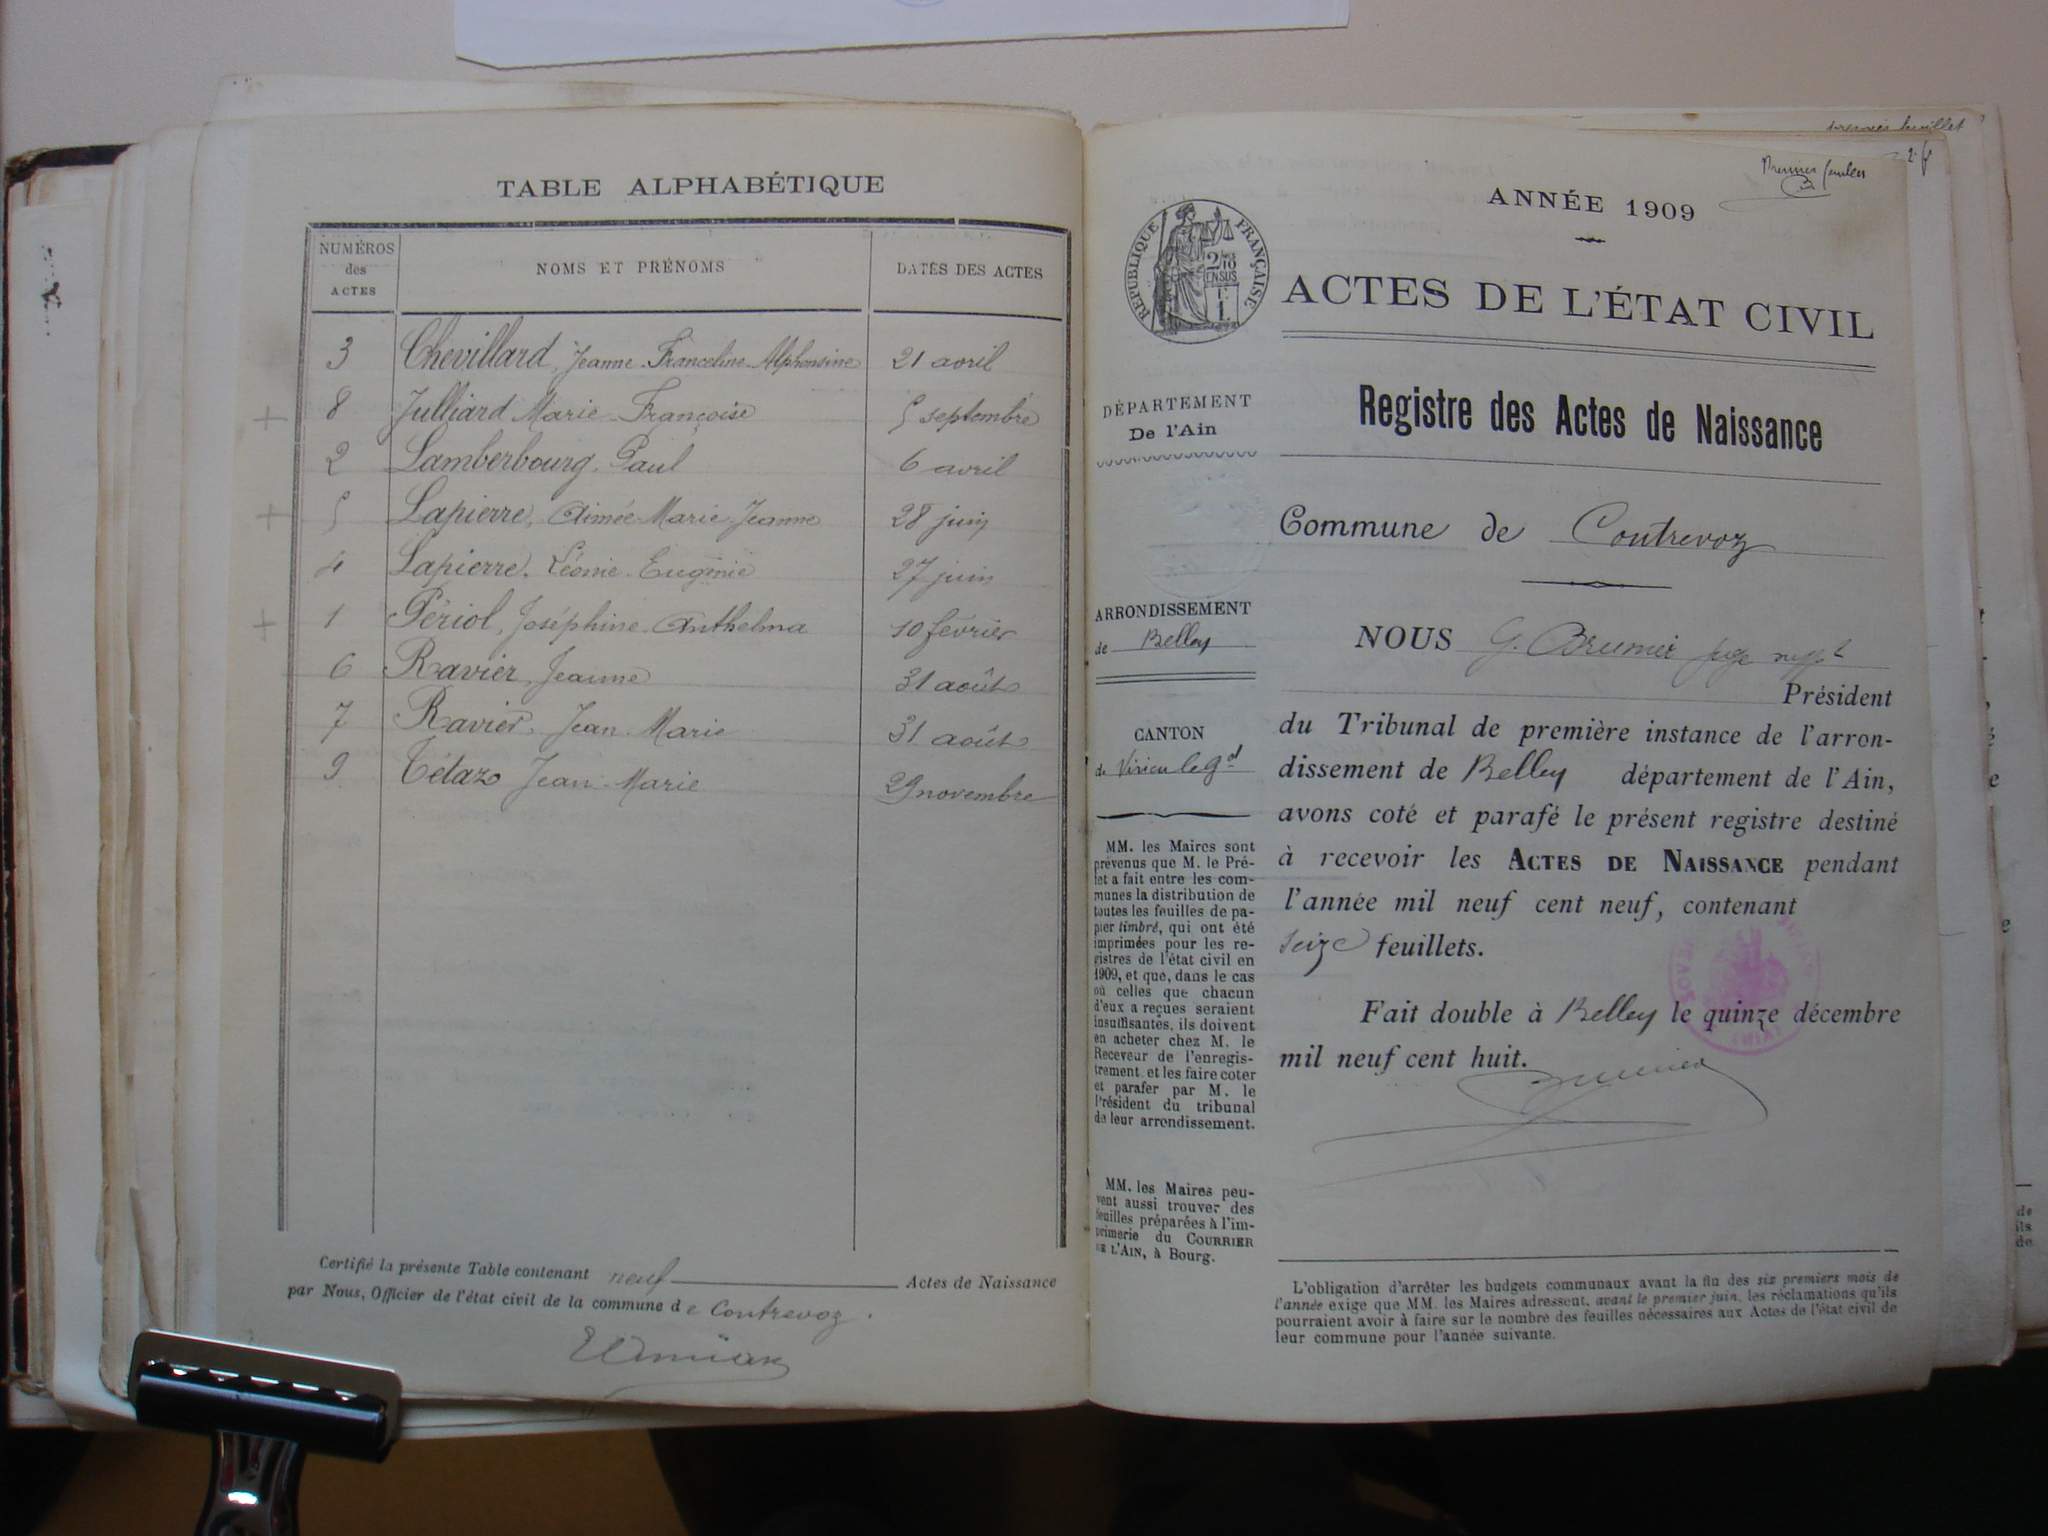 TABLE ALPHABÉTIQUE
NUMÉROS
des
ACTES
NOMS ET PRÉNOMS
DATES DES ACTES
3 Chevillard, Jeanne Franceline Alphonsine 21 avril
8 Julliard Marie Françoise 5 septembre
2 Lamberbourg, Paul 6 avril
5 Lapierre, Aimée Marie Jeanne 28 juin
4 Lapierre, Léonie Eugénie 27 juin
1 Périol, Joséphine Anthelma 10 février
6 Ravier, Jeanne 31 août
7 Ravier, Jean Marie 31 août
9 Tétaz Jean Marie 29 novembre
Certifié la présente Table contenant neuf Actes de Naissance
par Nous, Officier de l'état civil de la commune de Contrevoz.
premier feuillet
ANNÉE 1909
RÉPUBLIQUE FRANÇAISE
ACTES DE L'ÉTAT CIVIL
Registre des Actes de Naissance
DÉPARTEMENT
De l'Ain
Commune de Contrevoz
ARRONDISSEMENT
de Belley
CANTON
de Virieu le Gd
MM. les Maires sont
prévenus que M. le Pré-
fet a fait entre les com-
munes la distribution de
toutes les feuilles de pa-
pier timbré, qui ont été
imprimées pour les re-
gistres de l'état civil en
1909, et que, dans le cas
où celles que chacun
d'eux a reçues seraient
insuffisantes, ils doivent
en acheter chez M. le
Receveur de l'enregis-
trement et les faire coter
et parafer par M. le
Président du tribunal
de leur arrondissement.
MM. les Maires peu-
vent aussi trouver des
feuilles préparées à l'im-
primerie du COURRIER
DE L'AIN, à Bourg.
NOUS G. Brunier juge suppt
Président
du Tribunal de première instance de l'arron-
dissement de Belley département de l'Ain,
avons coté et parafé le présent registre destiné
à recevoir les ACTES DE NAISSANCE pendant
l'année mil neuf cent neuf, contenant
seize feuillets.
Fait double à Belley le quinze décembre
mil neuf cent huit.
Brunier
L'obligation d'arrêter les budgets communaux avant la fin des six premiers mois de
l'année exige que MM. les Maires adressent, avant le premier juin, les réclamations qu'ils
pourraient avoir à faire sur le nombre des feuilles nécessaires aux Actes de l'état civil de
leur commune pour l'année suivante.